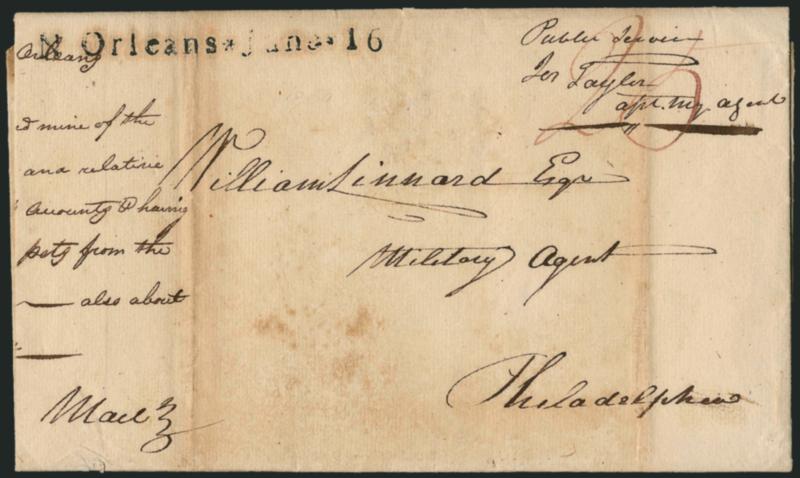 N. Orleans * June * 16
Orleans
ed mine of the
and relative
accounts & having
pets from the
also about
Public Service
Jes Taylor
apt. my agent
25
William Linnard Esqr
Military Agent
Philadelphia
Mail